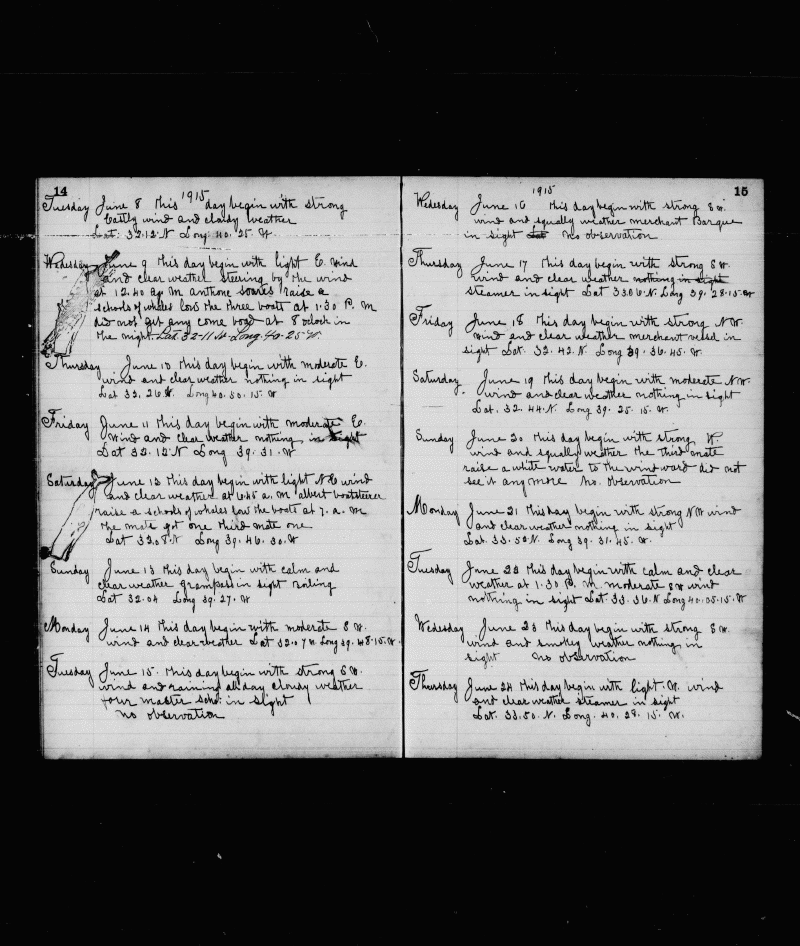 14
1915
Tuesday June 8 This day begin with strong
Eastly wind and cloudy weather
Lat. 32.12 N Long. 40. 25. W
Wednesday June 9 This day begin with light E. wind
and clear weather steering by the wind
at 12.40 P. M anthone Soares raise a
schools of whales low the three boats at 1.30 P. M
did not get any come board at 8 oclock in
the night. Lat. 32-11 N Long. 40-25 W.
Thursday June 10 This day begin with moderate E.
wind and clear weather nothing in sight
Lat 32. 26 N. Long 40. 50. 15. W
Friday June 11 This day begin with moderate E.
wind and clear weather nothing in sight
Lat 32. 12 N Long 39. 31. W
Saturday June 12 This day begin with light N.E wind
and clear weather at 6.45 a. M albert boatsteerer
raise a schools of whales low the boats at 7. a. M.
The mate got one third mate one
Lat 32.08 N Long 39. 46. 30. W
Sunday June 13 This day begin with calm and
clear weather grampass in sight
Lat 32.04 Long 39. 27. W
Monday June 14 This day begin with moderate S W.
wind and clear weather Lat 32.07 N Long 39. 48.15. W.
Tuesday June 15. This day begin with strong S W.
wind and raining all day cloudy weather
four master sch. in sight
no observation
1915
15
Wedesday June 16 This day begin with strong S W.
wind and squally weather merchant Barque
in sight Lat no observation
Thursday June 17 This day begin with strong S W.
wind and clear weather nothing in sight
steamer in sight Lat 33.06 N. Long 39. 28.15. W
Friday June 18 This day begin with strong N W.
wind and clear weather merchant vessel in
sight Lat. 32. 42. N. Long 39. 36. 45. W.
Saturday June 19 This day begin with moderate N W.
wind and clear weather nothing in sight
Lat. 32. 44. N. Long 39. 25. 15. W.
Sunday June 20 This day begin with strong W.
wind and squally weather the third mate
raise a white water to the windward did not
see it any more No. observation
Monday June 21 This day begin with strong N W wind
and clear weather nothing in sight
Lat. 33. 52 N. Long 39. 31. 45. W.
Tuesday June 22 This day begin with calm and clear
weather at 1.30 P. M. moderate S W wind
nothing in sight Lat 33. 36 N Long 40. 05. 15. W
Wedesday June 23 This day begin with strong S W.
wind and smokey weather nothing in
sight no observation
Thursday June 24 This day begin with light. W. wind
and clear weather steamer in sight
Lat. 33. 50. N. Long. 40. 28. 15. W.